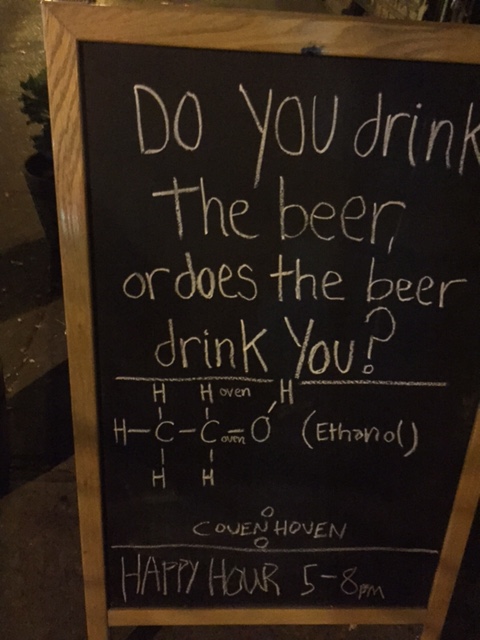 Do YOU drink
The beer,
or does the beer
drink You?
H H oven H
H-C-C oven O (Ethanol)
H H
COVENHOVEN
HAPPY HOUR 5-8pm